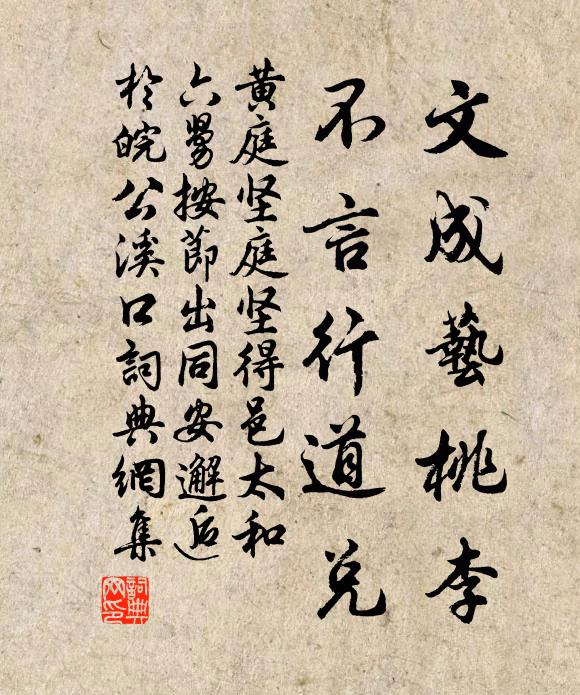 文成藝桃李
不言行道兌
黄庭坚庭坚得邑太和
六舅按節出同安邂逅
於皖公溪口詞典網集
詞典
网印